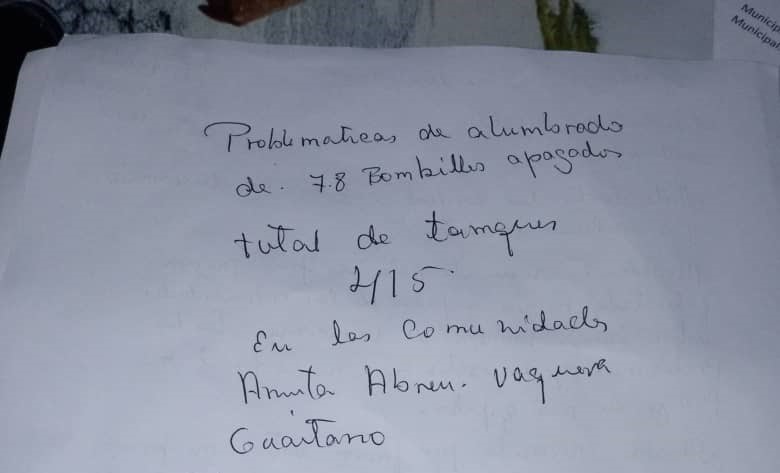 Municip
Municipa
Problematicas de alumbrado
de. 7.8 Bombillos apagados
tutal de tanques
215.
En las Comunidades
Anuta Abreu. vaquera
Guaitano